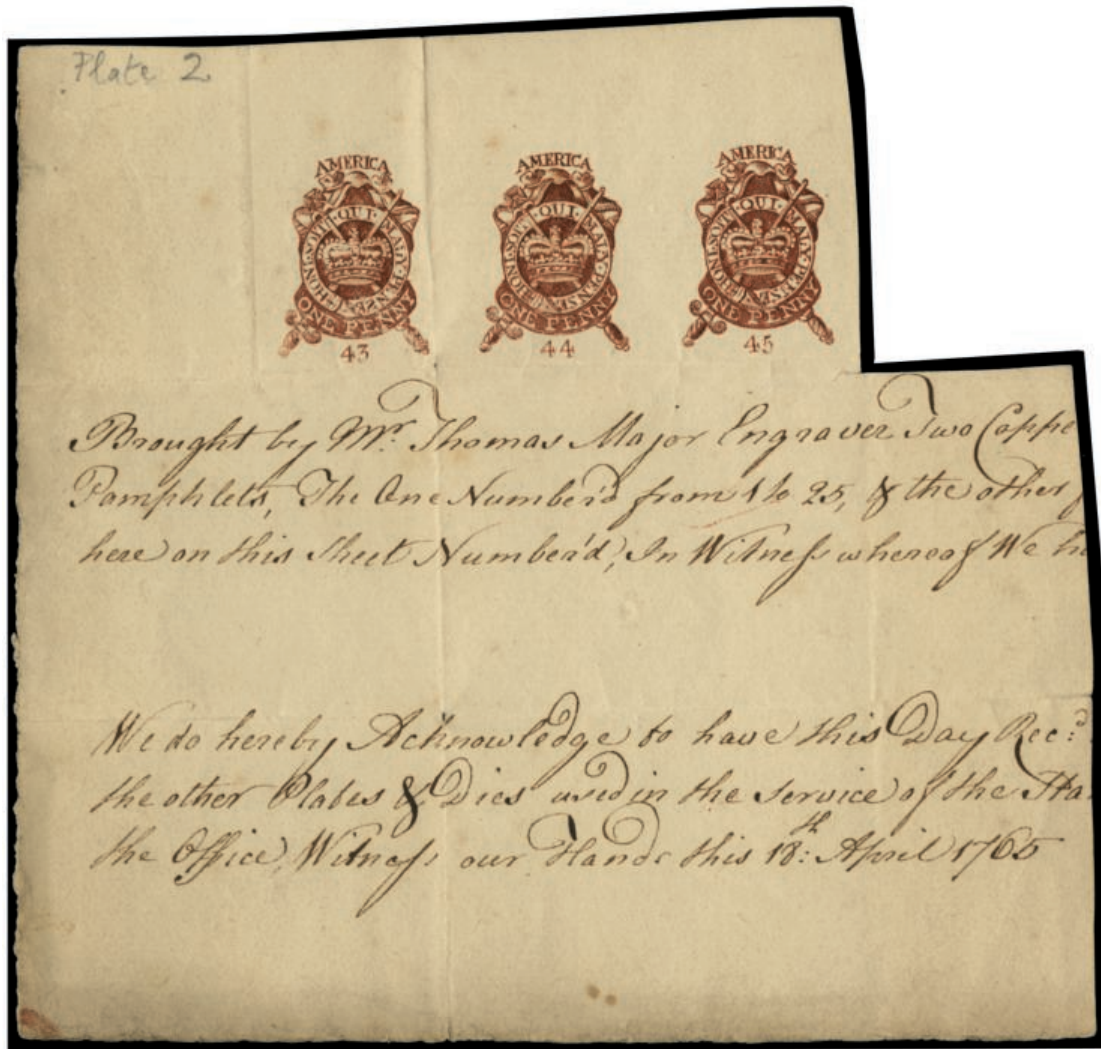 Plate 2
AMERICA AMERICA AMERICA
HONI·SOIT·QUI·MAL·Y·PENSE HONI·SOIT·QUI·MAL·Y·PENSE HONI·SOIT·QUI·MAL·Y·PENSE
ONE PENNY ONE PENNY ONE PENNY
43 44 45
Brought by Mr. Thomas Major Engraver Two Coppe
Pamphlets, The One Number'd from 1 to 25, & the other
here on this sheet Number'd, In Witness whereof We h
We do hereby Acknowledge to have this Day Rec:d
the other Plates & Dies used in the service of the Sta
the Office, Witness our Hands this 18:th April 1765